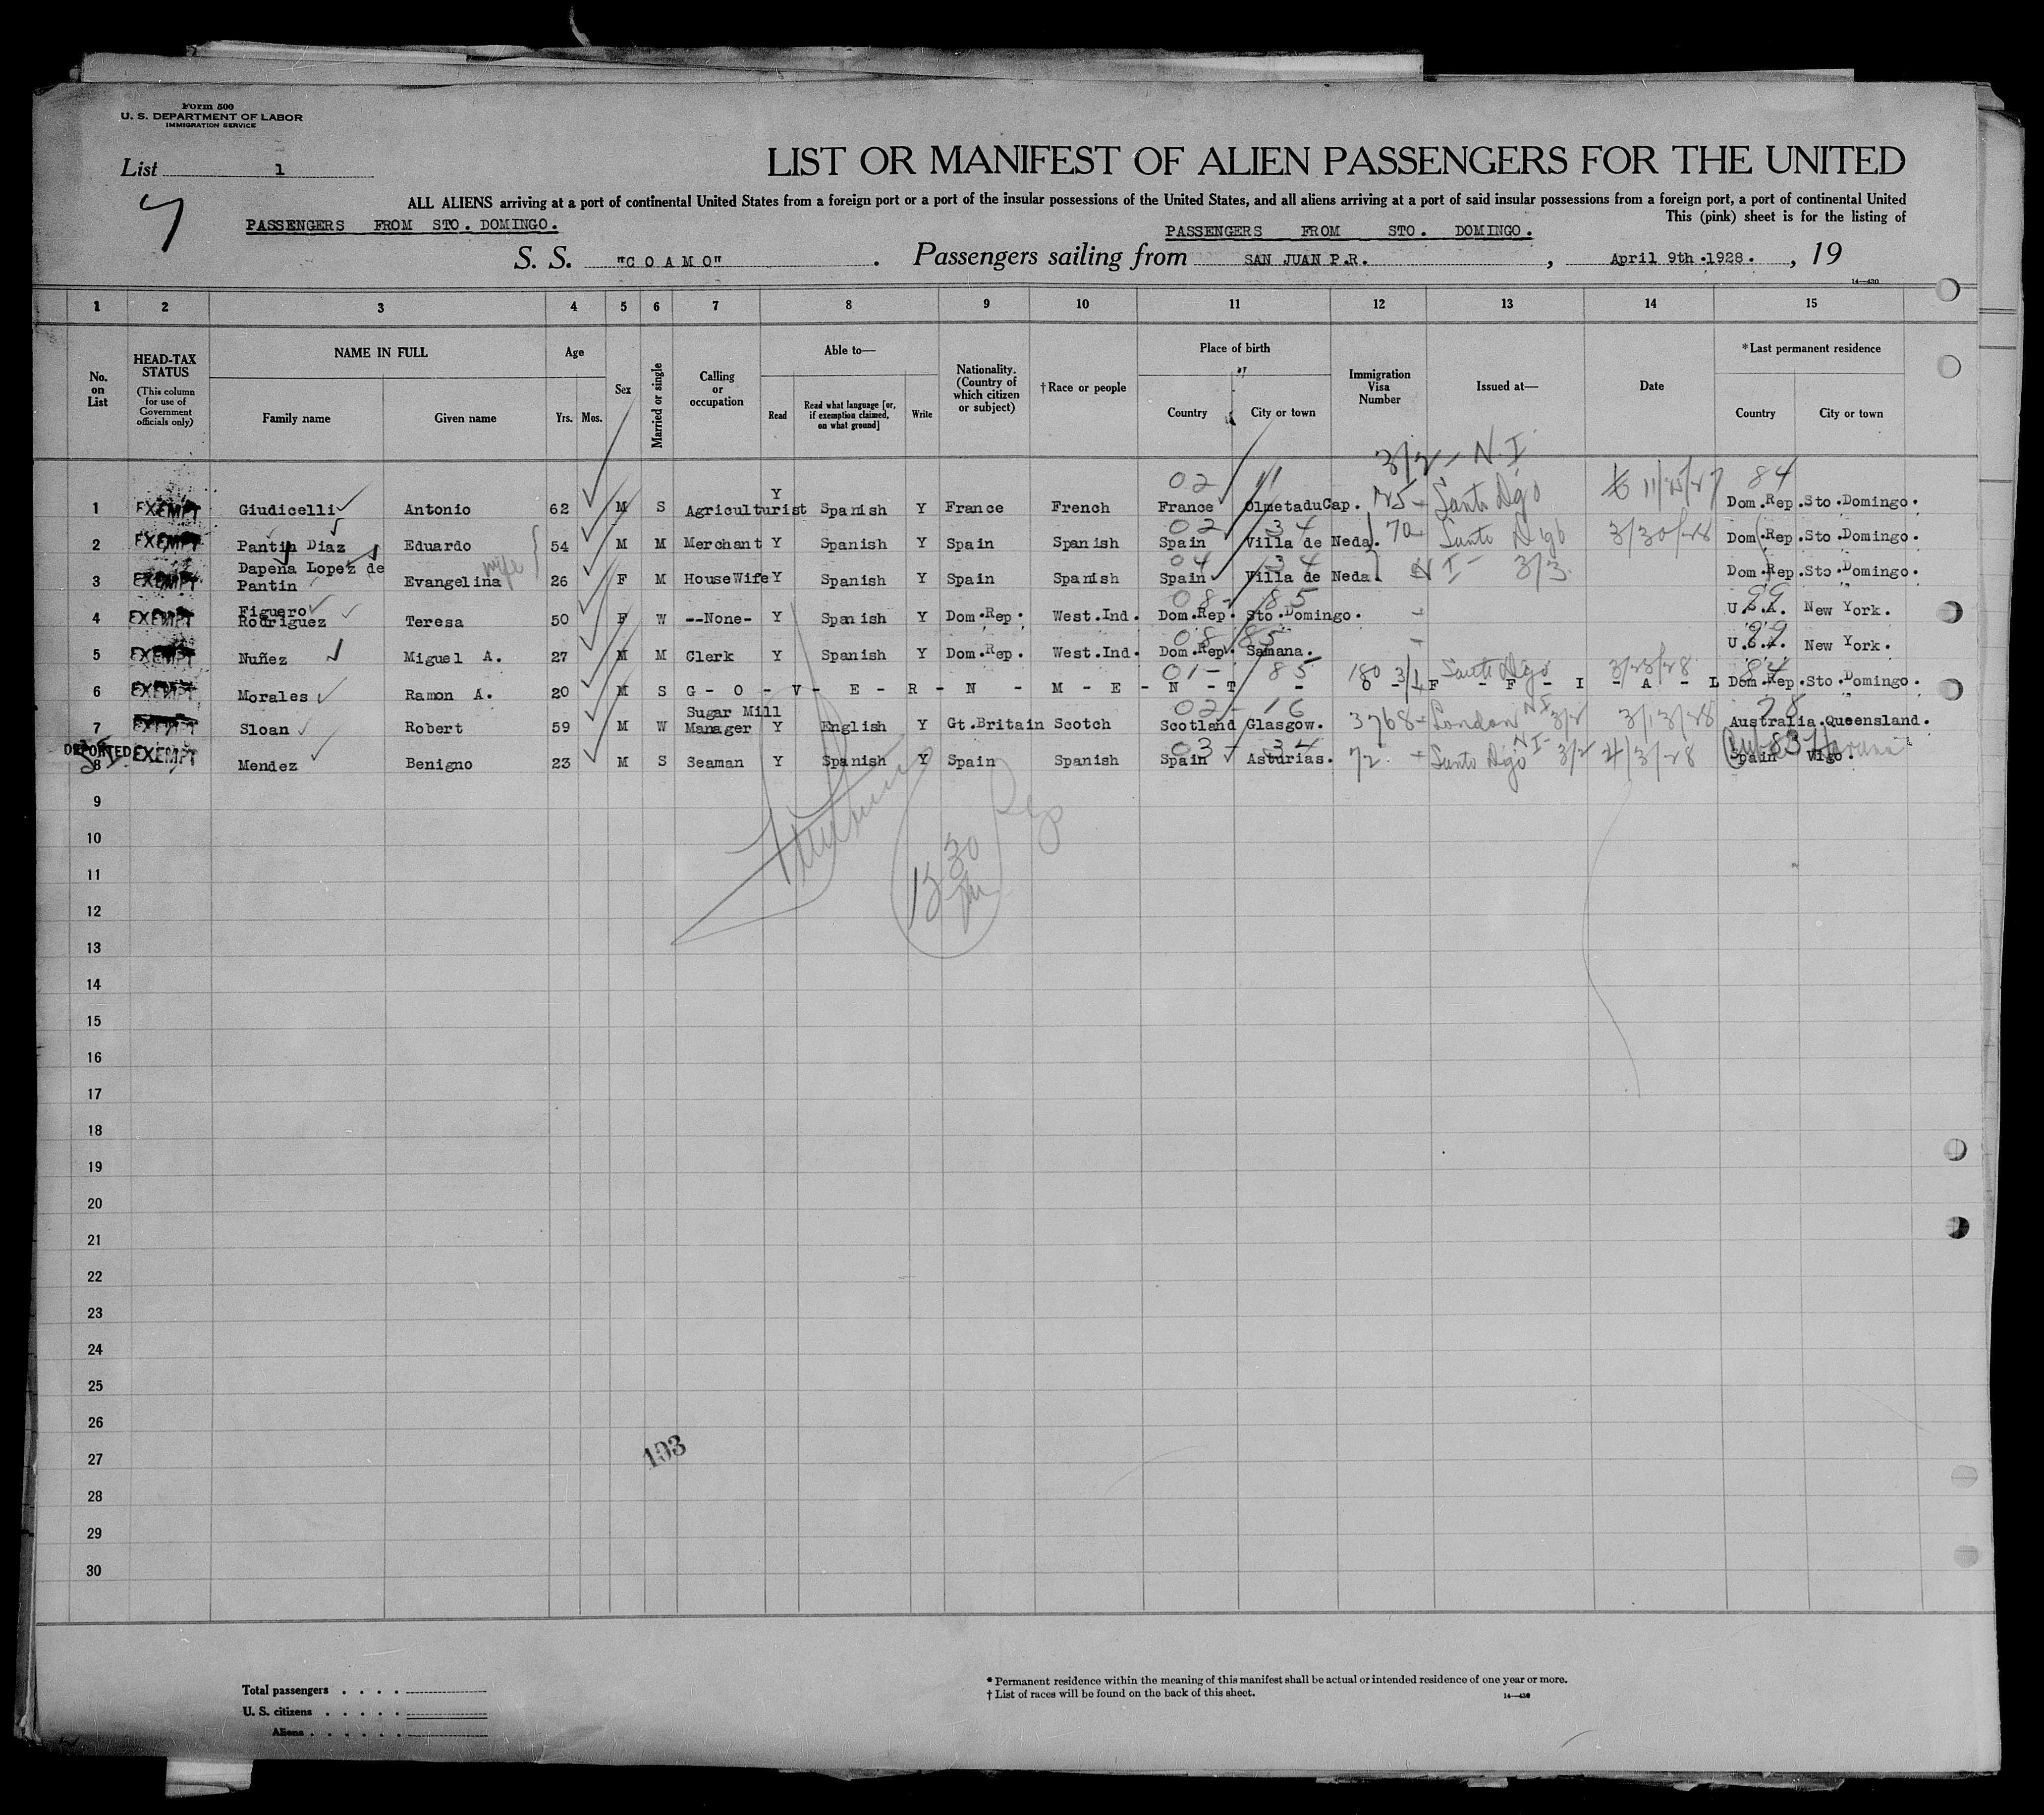 Form 500
U. S. DEPARTMENT OF LABOR
IMMIGRATION SERVICE
List 1
LIST OR MANIFEST OF ALIEN PASSENGERS FOR THE UNITED
ALL ALIENS arriving at a port of continental United States from a foreign port or a port of the insular possessions of the United States, and all aliens arriving at a port of said insular possessions from a foreign port, a port of continental United
This (pink) sheet is for the listing of
PASSENGERS FROM STO. DOMINGO. PASSENGERS FROM STO. DOMINGO.
S. S. "COAMO". Passengers sailing from SAN JUAN P.R. , April 9th.1928. , 19
14—430
1 2 3 4 5 6 7 8 9 10 11 12 13 14 15
No. on List
HEAD-TAX STATUS
(This column for use of Government officials only)
NAME IN FULL
Family name Given name
Age
Yrs. Mos.
Sex
Married or single
Calling or occupation
Able to—
Read Read what language [or, if exemption claimed, on what ground] Write
Nationality. (Country of which citizen or subject)
† Race or people
Place of birth
Country City or town
Immigration Visa Number
Issued at—
Date
* Last permanent residence
Country City or town
3/2 - N.I
02 11 84
1 EXEMPT Giudicelli Antonio 62 M S Agriculturist Y Spanish Y France French France OlmetaduCap. Santo Dgo 11/25/27 Dom.Rep.Sto.Domingo.
02 34
2 EXEMPT Pantin Diaz Eduardo 54 M M Merchant Y Spanish Y Spain Spanish Spain Villa de Neda. 70 Santo Dgo 3/30/28 Dom.Rep.Sto.Domingo.
wife 04 34
3 EXEMPT Dapena Lopez de Pantin Evangelina 26 F M HouseWife Y Spanish Y Spain Spanish Spain Villa de Neda. NI- 3/3 Dom.Rep.Sto.Domingo.
08- 85 99
4 EXEMPT Figuero Rodriguez Teresa 50 F W --None- Y Spanish Y Dom.Rep. West.Ind. Dom.Rep. Sto.Domingo. - U.S.A. New York.
08 85 99
5 EXEMPT Nuñez Miguel A. 27 M M Clerk Y Spanish Y Dom.Rep. West.Ind. Dom.Rep. Samana. - U.S.A. New York.
01- 85 84
6 EXEMPT Morales Ramon A. 20 M S G - O - V - E - R - N - M - E - N - T - O - F - F - I - A - L 180 3/4 Santo Dgo 3/23/28 Dom.Rep.Sto.Domingo.
02- 16 78
7 EXEMPT Sloan Robert 59 M W Sugar Mill Manager Y English Y Gt.Britain Scotch Scotland Glasgow. 3768- London NI 3/2 3/13/28 Australia.Queensland.
DEPORTED 03- 34 83
8 EXEMPT Mendez Benigno 23 M S Seaman Y Spanish Y Spain Spanish Spain Asturias. 72 - Santo Dgo NI- 3/2 4/3/28 Spain Vigo. Cuba Havana
9
10
11
12
13
14
15
16
17
18
19
20
21
22
23
24
25
26
27
28
29
30
193
Total passengers . . . .
U. S. citizens . . . . .
Aliens . . . . . .
* Permanent residence within the meaning of this manifest shall be actual or intended residence of one year or more.
† List of races will be found on the back of this sheet.
14—430